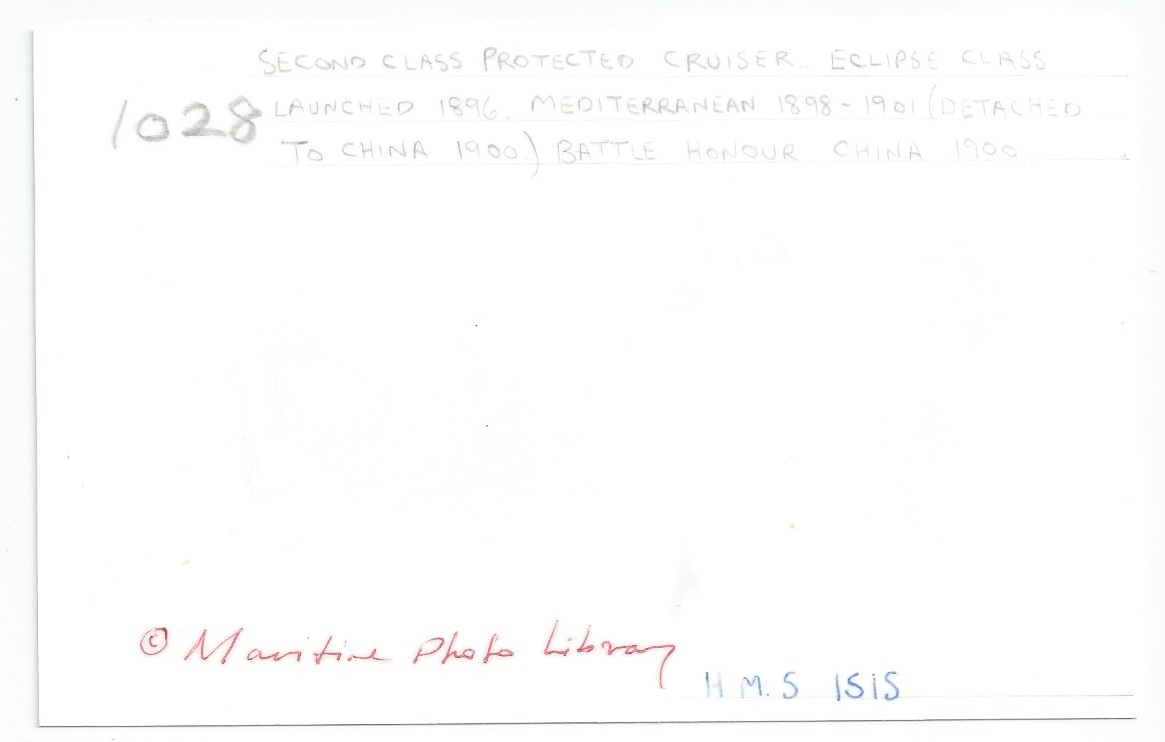 SECOND CLASS PROTECTED CRUISER. ECLIPSE CLASS
1028 LAUNCHED 1896. MEDITERRANEAN 1898-1901 (DETACHED
TO CHINA 1900.) BATTLE HONOUR CHINA 1900
© Maritime Photo Library
H M. S ISIS